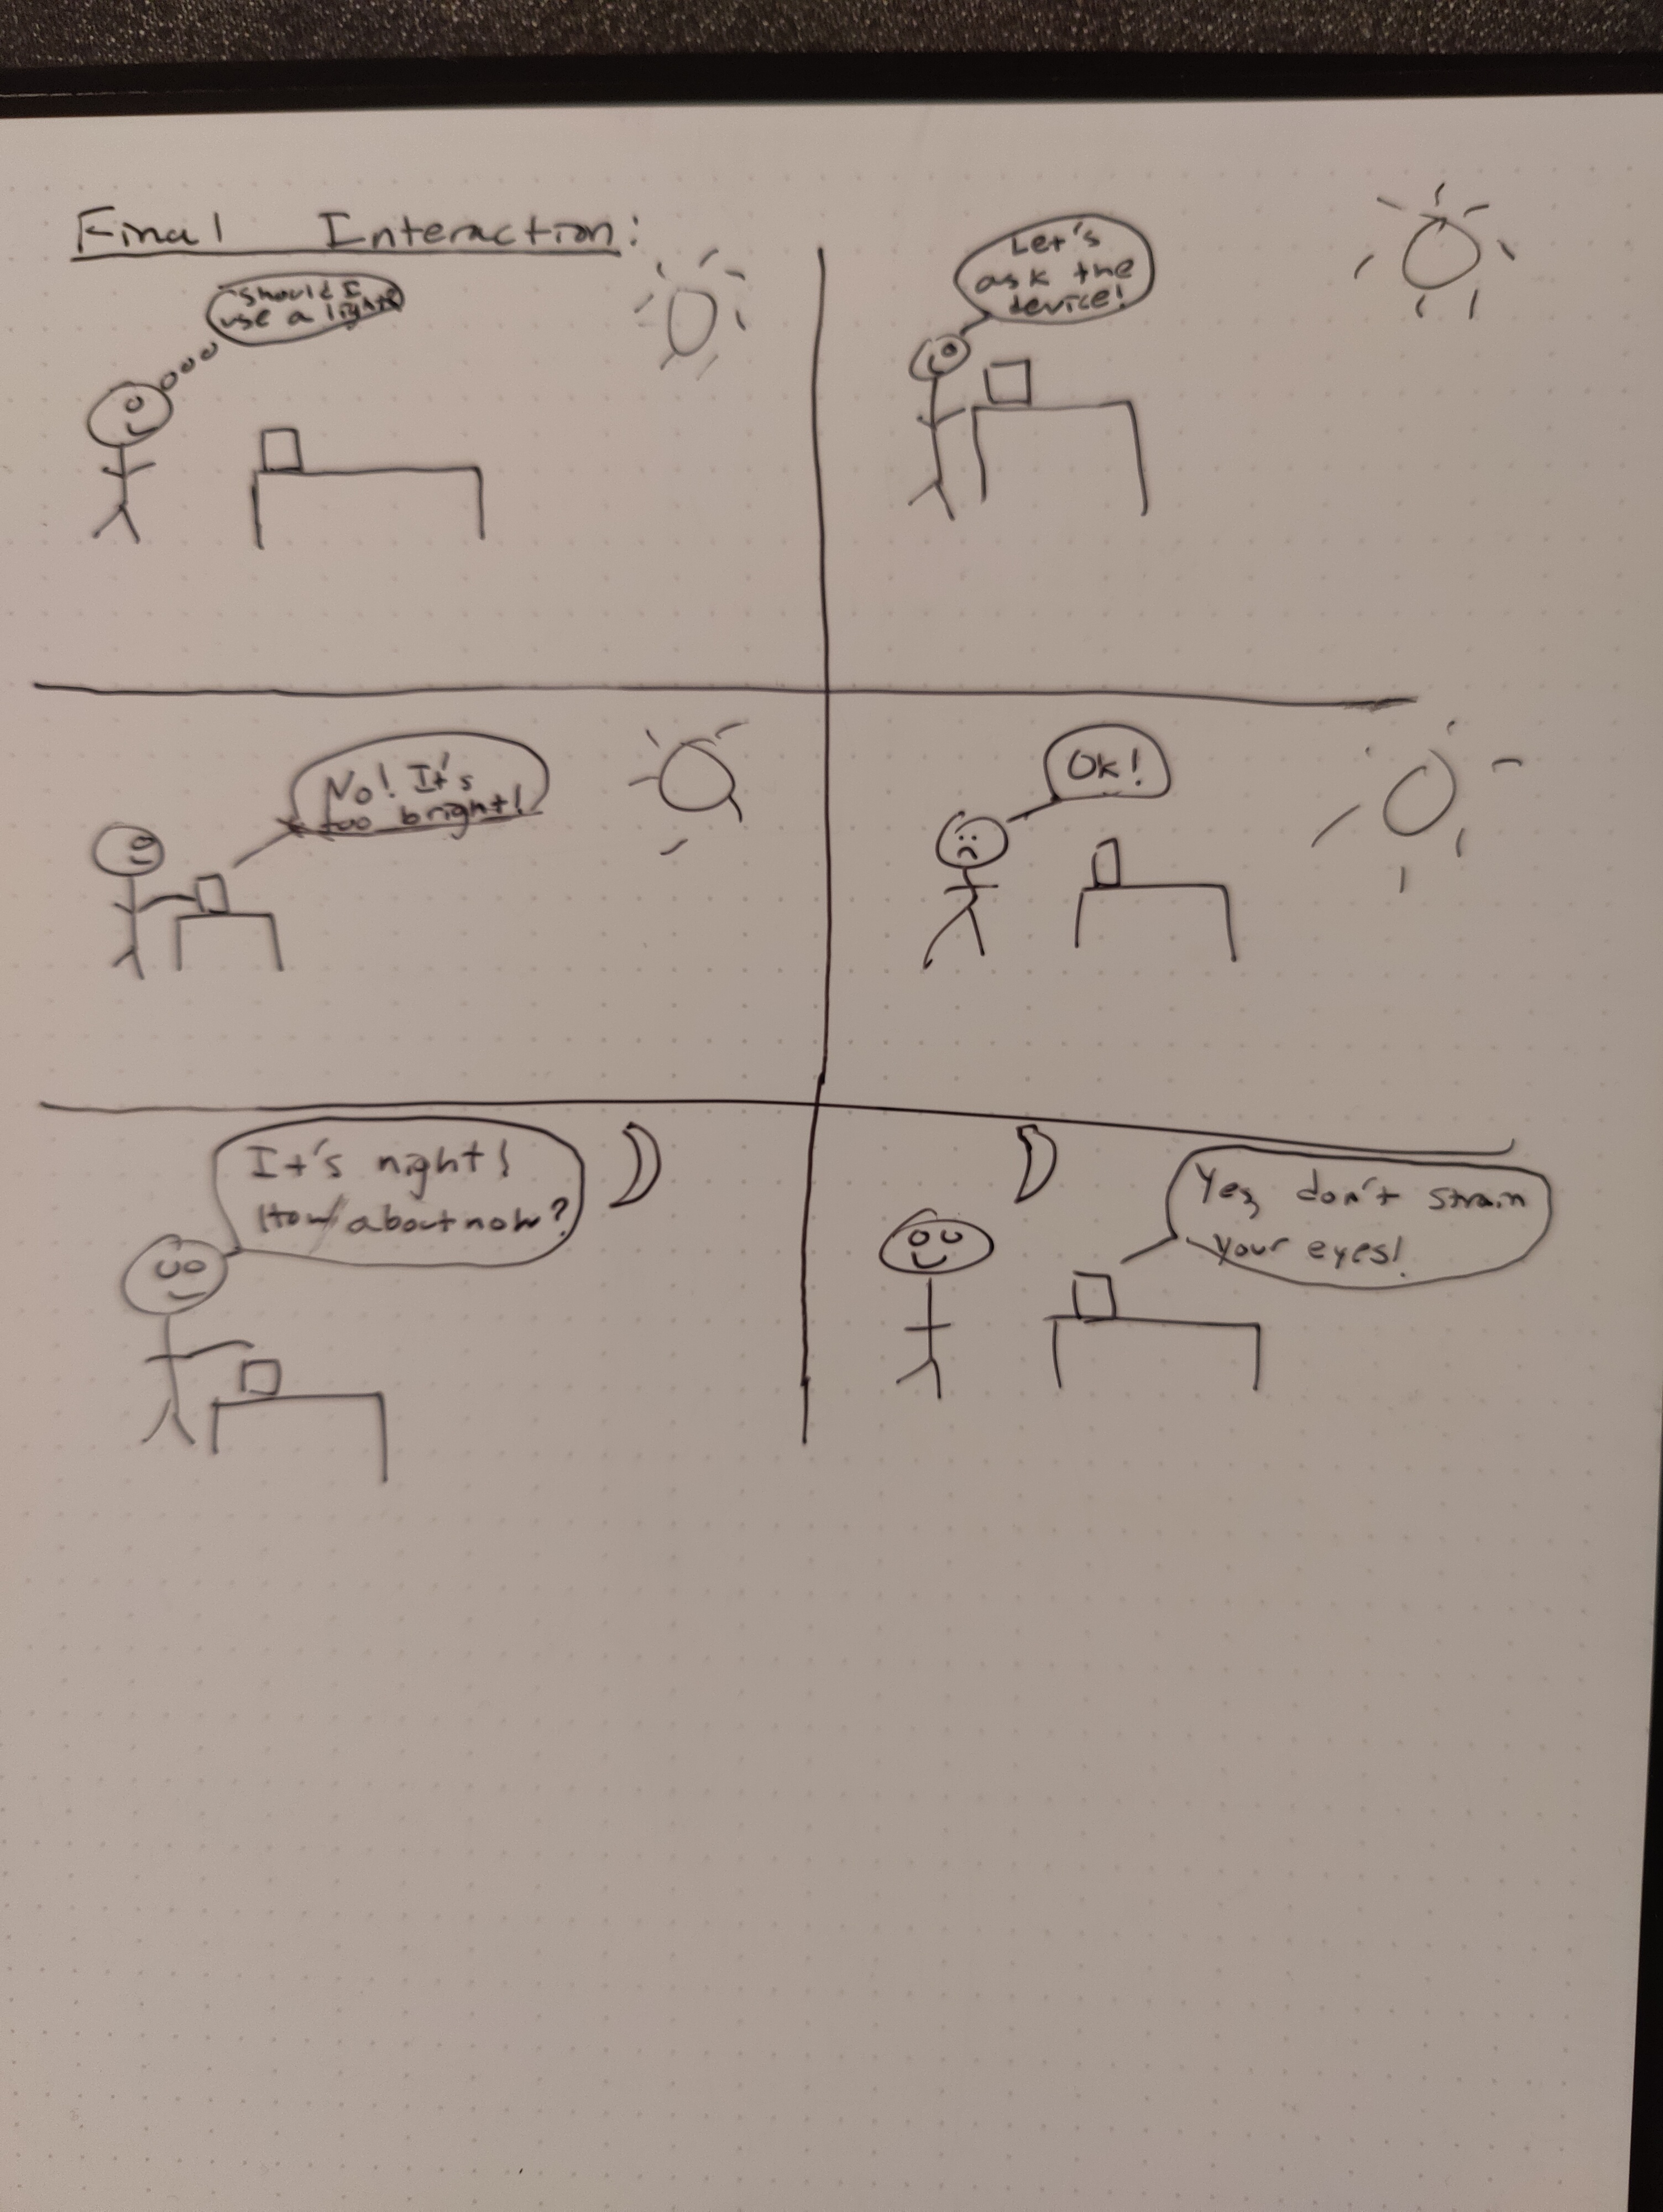 Final Interaction:
Should I
use a light?
Let's
ask the
device!
No! It's
too bright!
Ok!
It's night!
How about now?
Yes, don't strain
your eyes!